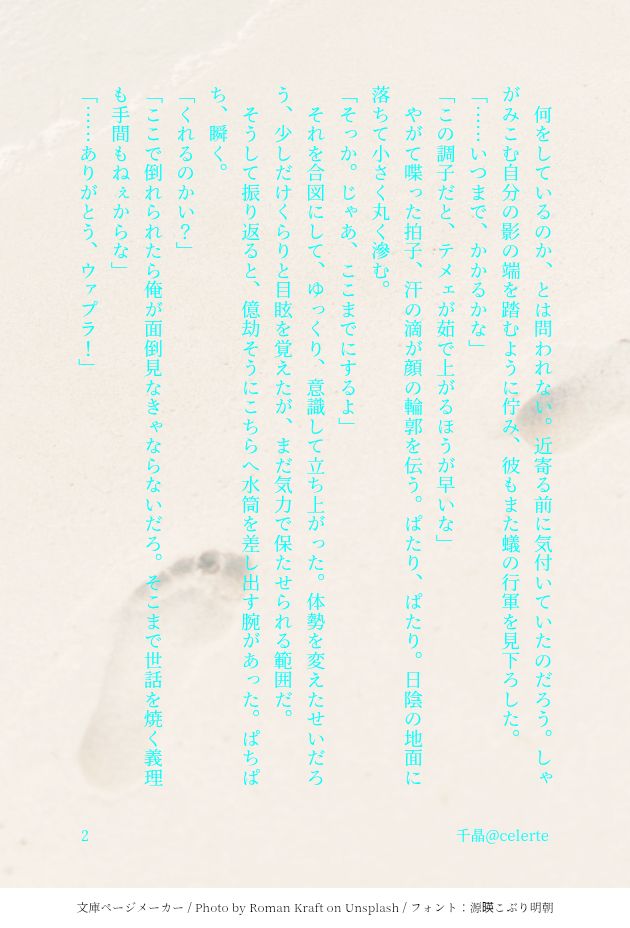 何をしているのか、とは問われない。近寄る前に気付いていたのだろう。しゃ
がみこむ自分の影の端を踏むように佇み、彼もまた蟻の行軍を見下ろした。
「……いつまで、かかるかな」
「この調子だと、テメェが茹で上がるほうが早いな」
　やがて喋った拍子、汗の滴が顔の輪郭を伝う。ぱたり、ぱたり。日陰の地面に
落ちて小さく丸く滲む。
「そっか。じゃあ、ここまでにするよ」
　それを合図にして、ゆっくり、意識して立ち上がった。体勢を変えたせいだろ
う、少しだけくらりと目眩を覚えたが、まだ気力で保たせられる範囲だ。
　そうして振り返ると、億劫そうにこちらへ水筒を差し出す腕があった。ぱちぱ
ち、瞬く。
「くれるのかい？」
「ここで倒れられたら俺が面倒見なきゃならないだろ。そこまで世話を焼く義理
も手間もねぇからな」
「……ありがとう、ウァプラ！」
2
千晶@celerte
文庫ページメーカー / Photo by Roman Kraft on Unsplash / フォント：源暎こぶり明朝